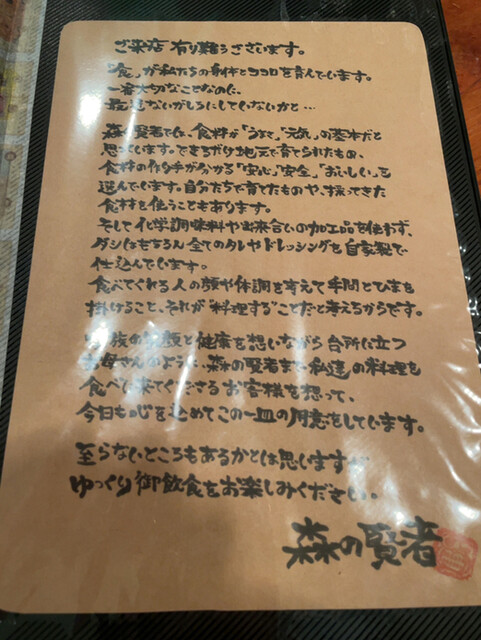 ご来店 有り難うございます。
「食」が私たちの身体とココロを育んでいます。
一番大切なことなのに、
最近ないがしろにしていないかと…
森の賢者では、食材が「うまさ」、「元気」の基本だと
思っています。できるだけ地元で育てられたもの、
食材の作り手が分かる「安心」、「安全」、「おいしい」を
選んでいます。自分たちで育てたものや、採ってきた
食材を使うこともあります。
そして化学調味料や出来合いの加工品を使わず、
ダシはもちろん全てのタレやドレッシングを自家製で
仕込んでいます。
食べてくれる人の顔や体調を考えて手間とひまを
掛けること、それが"料理する"ことだと考えるからです。
家族の笑顔と健康を想いながら台所に立つ
お母さんのように、森の賢者まで私達の料理を
食べに来てくださるお客様を想って、
今日も心を込めてこの一皿の用意をしています。
至らないところもあるかとは思いますが
ゆっくり御飲食をお楽しみください。
森の賢者